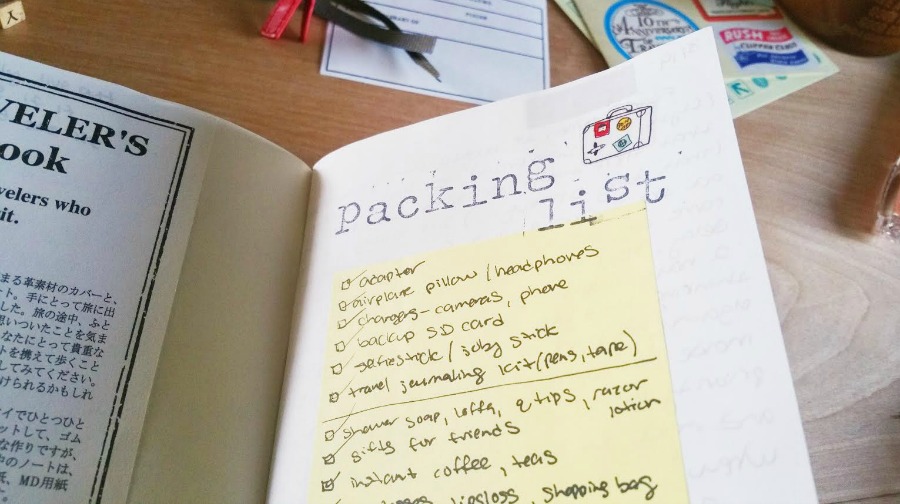 VELER'S
ook
velers who
it.
まる革素材のカバーと、
ート。手にとって旅に出
した。旅の途中、ふと
思いついたことを気ま
なたにとって貴重な
トを携えて歩くこと
してみてください。
けられるかもしれ
イでひとつひと
ットして、ゴム
な作りですが、
中のノートは、
紙、MD用紙
10TH
ANNIVERSARY
RUSH
packing
list
adapter
airplane pillow / headphones
chargers - cameras, phone
backup SD card
selfiestick / joby stick
travel journaling kit (pens, tape)
shower soap, loffa, q tips, razor
lotion
gifts for friends
instant coffee, teas
lipgloss, shopping bag